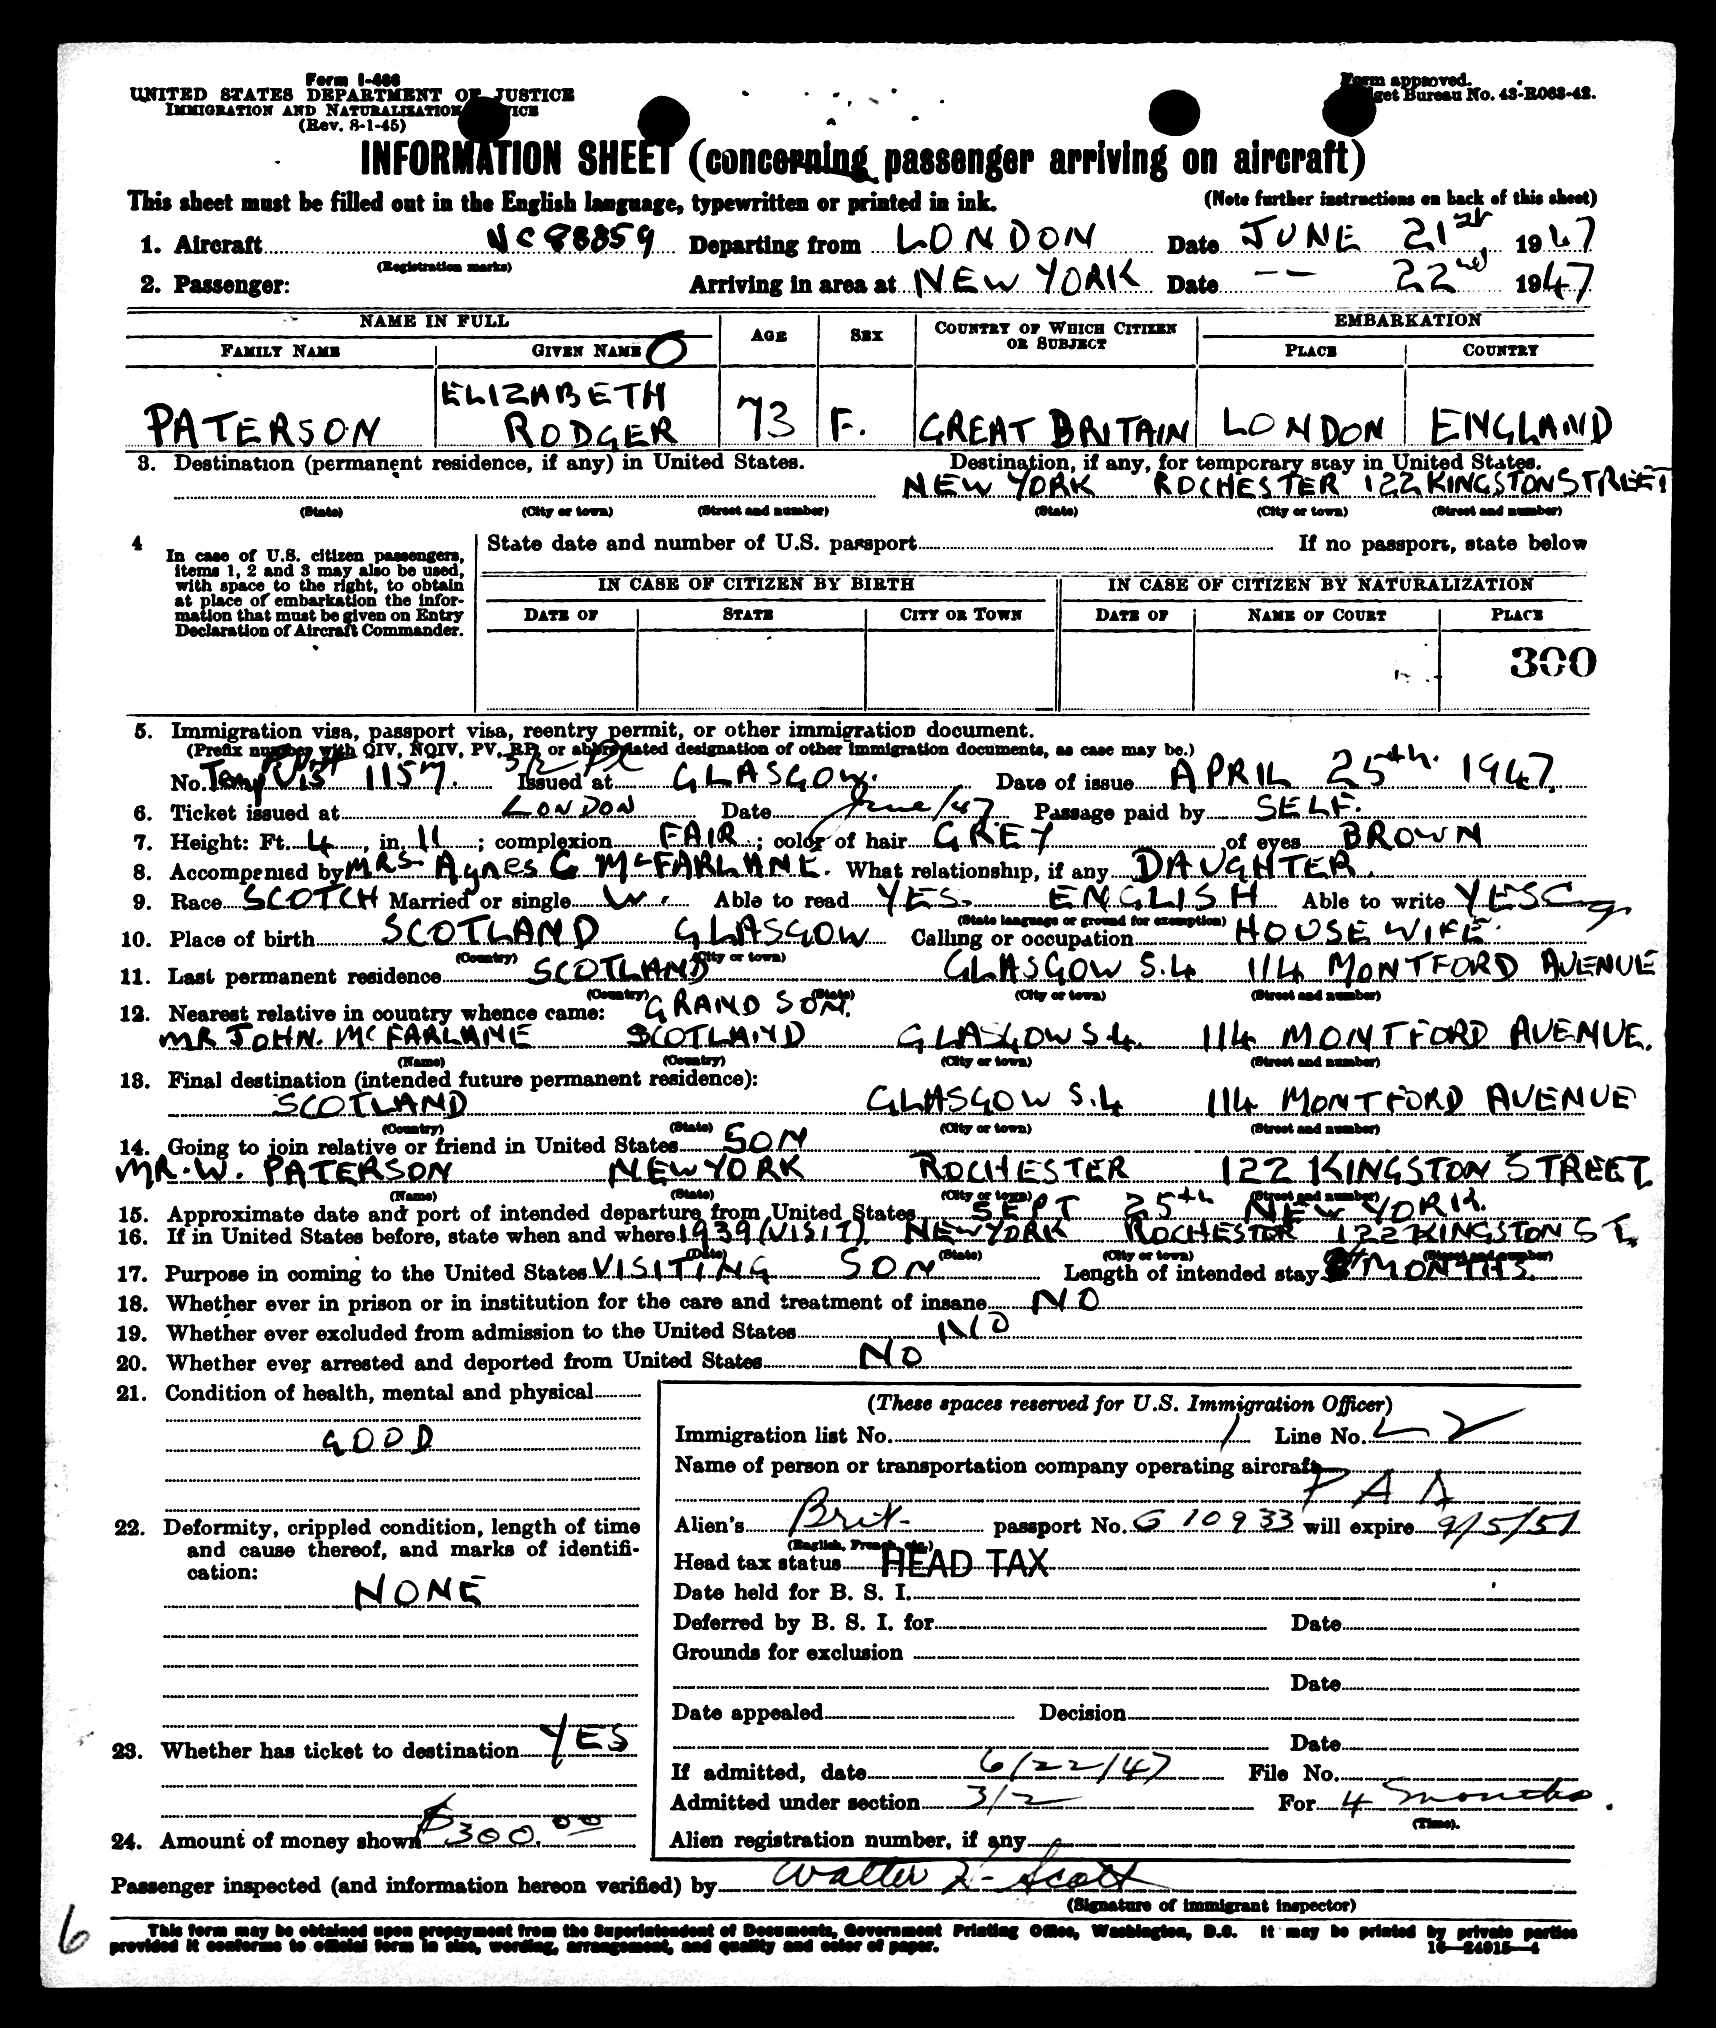 Form I-466
UNITED STATES DEPARTMENT OF JUSTICE
IMMIGRATION AND NATURALIZATION SERVICE
(Rev. 8-1-45)
Form approved.
Budget Bureau No. 43-R063-42.
INFORMATION SHEET (concerning passenger arriving on aircraft)
This sheet must be filled out in the English language, typewritten or printed in ink. (Note further instructions on back of this sheet)
1. Aircraft NC 88859 Departing from LONDON Date JUNE 21st 1947
(Registration marks)
2. Passenger: Arriving in area at NEW YORK Date -- 22nd 1947
NAME IN FULL AGE SEX COUNTRY OF WHICH CITIZEN OR SUBJECT EMBARKATION
FAMILY NAME GIVEN NAME PLACE COUNTRY
ELIZABETH
PATERSON RODGER 73 F. GREAT BRITAIN LONDON ENGLAND
3. Destination (permanent residence, if any) in United States. Destination, if any, for temporary stay in United States.
NEW YORK ROCHESTER 122 KINGSTON STREET
(State) (City or town) (Street and number) (State) (City or town) (Street and number)
4 In case of U.S. citizen passengers, items 1, 2 and 3 may also be used, with space to the right, to obtain at place of embarkation the information that must be given on Entry Declaration of Aircraft Commander.
State date and number of U.S. passport If no passport, state below
IN CASE OF CITIZEN BY BIRTH IN CASE OF CITIZEN BY NATURALIZATION
DATE OF STATE CITY OR TOWN DATE OF NAME OF COURT PLACE
300
5. Immigration visa, passport visa, reentry permit, or other immigration document.
(Prefix number with QIV, NQIV, PV, RP, or abbreviated designation of other immigration documents, as case may be.)
No. Temp Vis 1157. 3/2 Issued at GLASGOW. Date of issue APRIL 25th. 1947.
6. Ticket issued at LONDON Date June/47. Passage paid by SELF.
7. Height: Ft. 4, in. 11; complexion FAIR; color of hair GREY of eyes BROWN
8. Accompanied by MRS Agnes G McFARLANE. What relationship, if any DAUGHTER.
9. Race SCOTCH Married or single W. Able to read YES. ENGLISH Able to write YES
(State language or ground for exemption)
10. Place of birth SCOTLAND GLASGOW Calling or occupation HOUSEWIFE.
(Country) (City or town)
11. Last permanent residence SCOTLAND GLASGOW S.4 114 MONTFORD AVENUE
(Country) (State) (City or town) (Street and number)
12. Nearest relative in country whence came: GRAND SON.
MR JOHN. McFARLANE SCOTLAND GLASGOW S.4. 114 MONTFORD AVENUE.
(Name) (Country) (City or town) (Street and number)
13. Final destination (intended future permanent residence):
SCOTLAND GLASGOW S.4 114 MONTFORD AVENUE
(Country) (State) (City or town) (Street and number)
14. Going to join relative or friend in United States SON
MR. W. PATERSON NEW YORK ROCHESTER 122 KINGSTON STREET
(Name) (State) (City or town) (Street and number)
15. Approximate date and port of intended departure from United States SEPT 25th NEW YORK.
16. If in United States before, state when and where 1939 (VISIT) NEW YORK ROCHESTER 122 KINGSTON ST.
(Date) (State) (City or town) (Street and number)
17. Purpose in coming to the United States VISITING SON Length of intended stay MONTHS.
18. Whether ever in prison or in institution for the care and treatment of insane NO
19. Whether ever excluded from admission to the United States NO
20. Whether ever arrested and deported from United States NO
21. Condition of health, mental and physical
GOOD
22. Deformity, crippled condition, length of time and cause thereof, and marks of identification:
NONE
23. Whether has ticket to destination YES
24. Amount of money shown $300.00
(These spaces reserved for U.S. Immigration Officer)
Immigration list No. 1 Line No. 2
Name of person or transportation company operating aircraft
P A A
Alien's Brit. passport No. G 10933 will expire 9/5/51
(English, French, etc.)
Head tax status HEAD TAX
Date held for B. S. I.
Deferred by B. S. I. for Date
Grounds for exclusion
Date
Date appealed Decision
Date
If admitted, date 6/22/47 File No.
Admitted under section 3/2 For 4 months.
(Time).
Alien registration number, if any
Passenger inspected (and information hereon verified) by Walter Scott
(Signature of immigrant inspector)
6
This form may be obtained upon prepayment from the Superintendent of Documents, Government Printing Office, Washington, D.C. It may be printed by private parties
provided it conforms to official form in size, wording, arrangement, and quality and color of paper. 16-24915-4